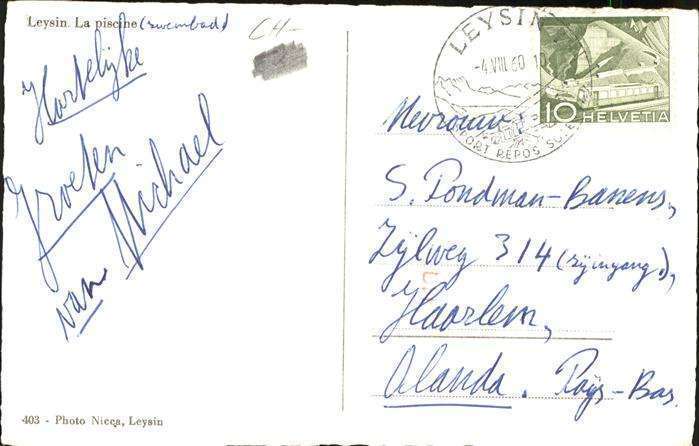 Leysin. La piscine (zwembad)
CH-
Hartelijke
Groeten
van Michael
403 - Photo Nicca, Leysin
LEYSIN
-4.VIII.60.10
SPORT REPOS SOLEIL
10 HELVETIA
Mevrouw:
S. Pondman-Banens,
Zijlweg 314 (zijingang!),
Haarlem,
Olanda. Pays-Bas.